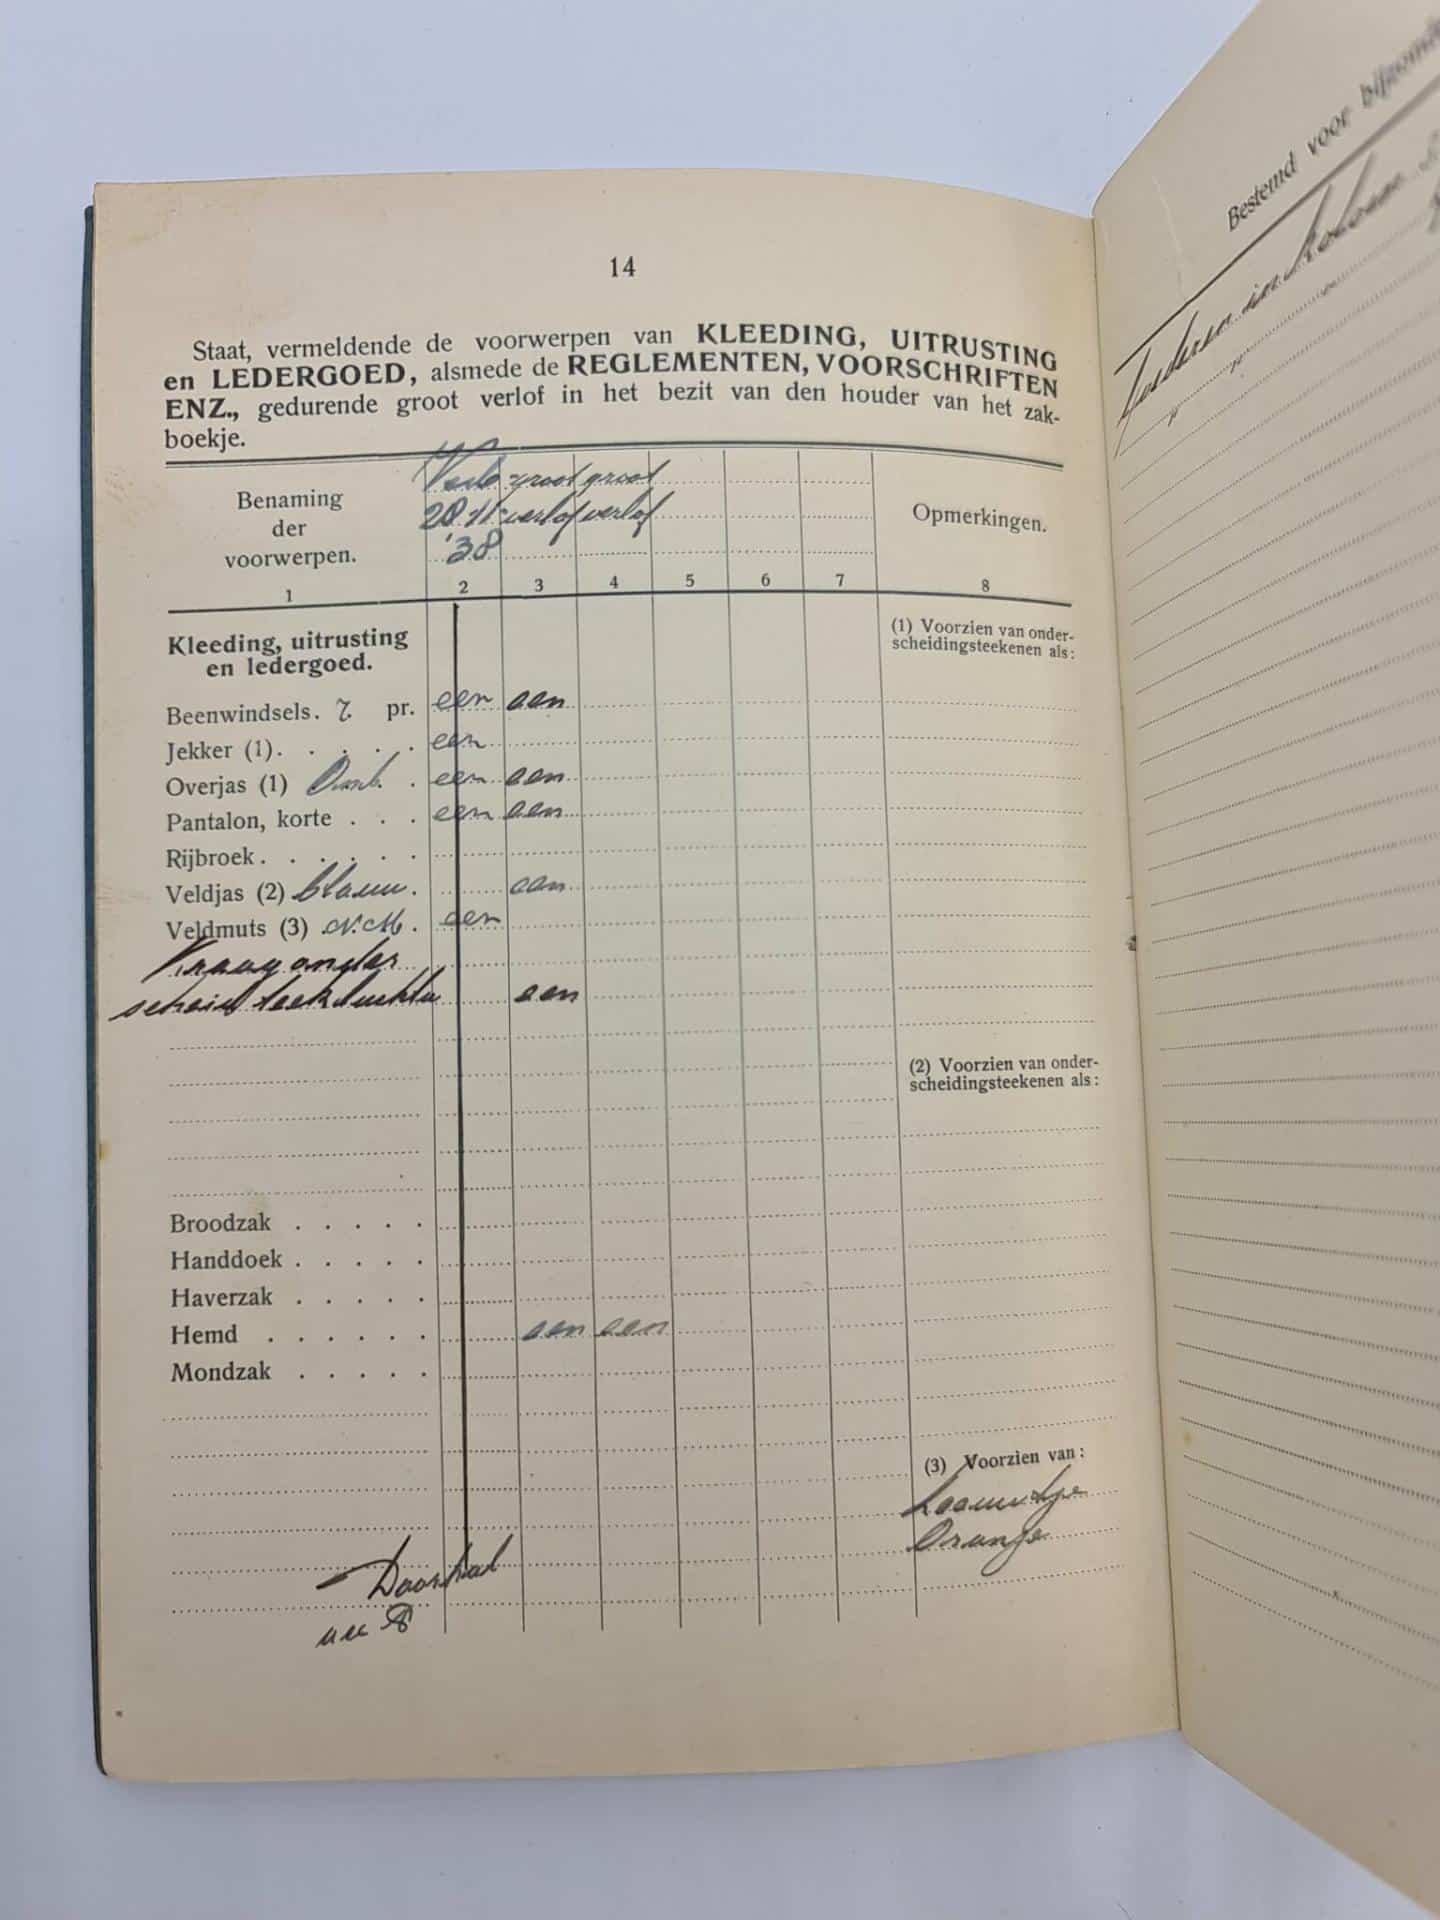 14
Staat, vermeldende de voorwerpen van KLEEDING, UITRUSTING
en LEDERGOED, alsmede de REGLEMENTEN, VOORSCHRIFTEN
ENZ., gedurende groot verlof in het bezit van den houder van het zak-
boekje.
Benaming
der
voorwerpen.
groot groot
28 11 verlof verlof
'38
Opmerkingen.
1 2 3 4 5 6 7 8
Kleeding, uitrusting
en ledergoed.
(1) Voorzien van onder-
scheidingsteekenen als:
Beenwindsels. pr. een een
Jekker (1). . . . . een
Overjas (1) . een een
Pantalon, korte . . . een een
Rijbroek. . . . . .
Veldjas (2) blauw. een
Veldmuts (3) N.M. een
Kraagonder
een
(2) Voorzien van onder-
scheidingsteekenen als:
Broodzak . . . . .
Handdoek . . . . .
Haverzak . . . . .
Hemd . . . . . . een een
Mondzak . . . . .
(3) Voorzien van:
Leeuwtje
Oranje
Doorhal
Bestemd voor
in